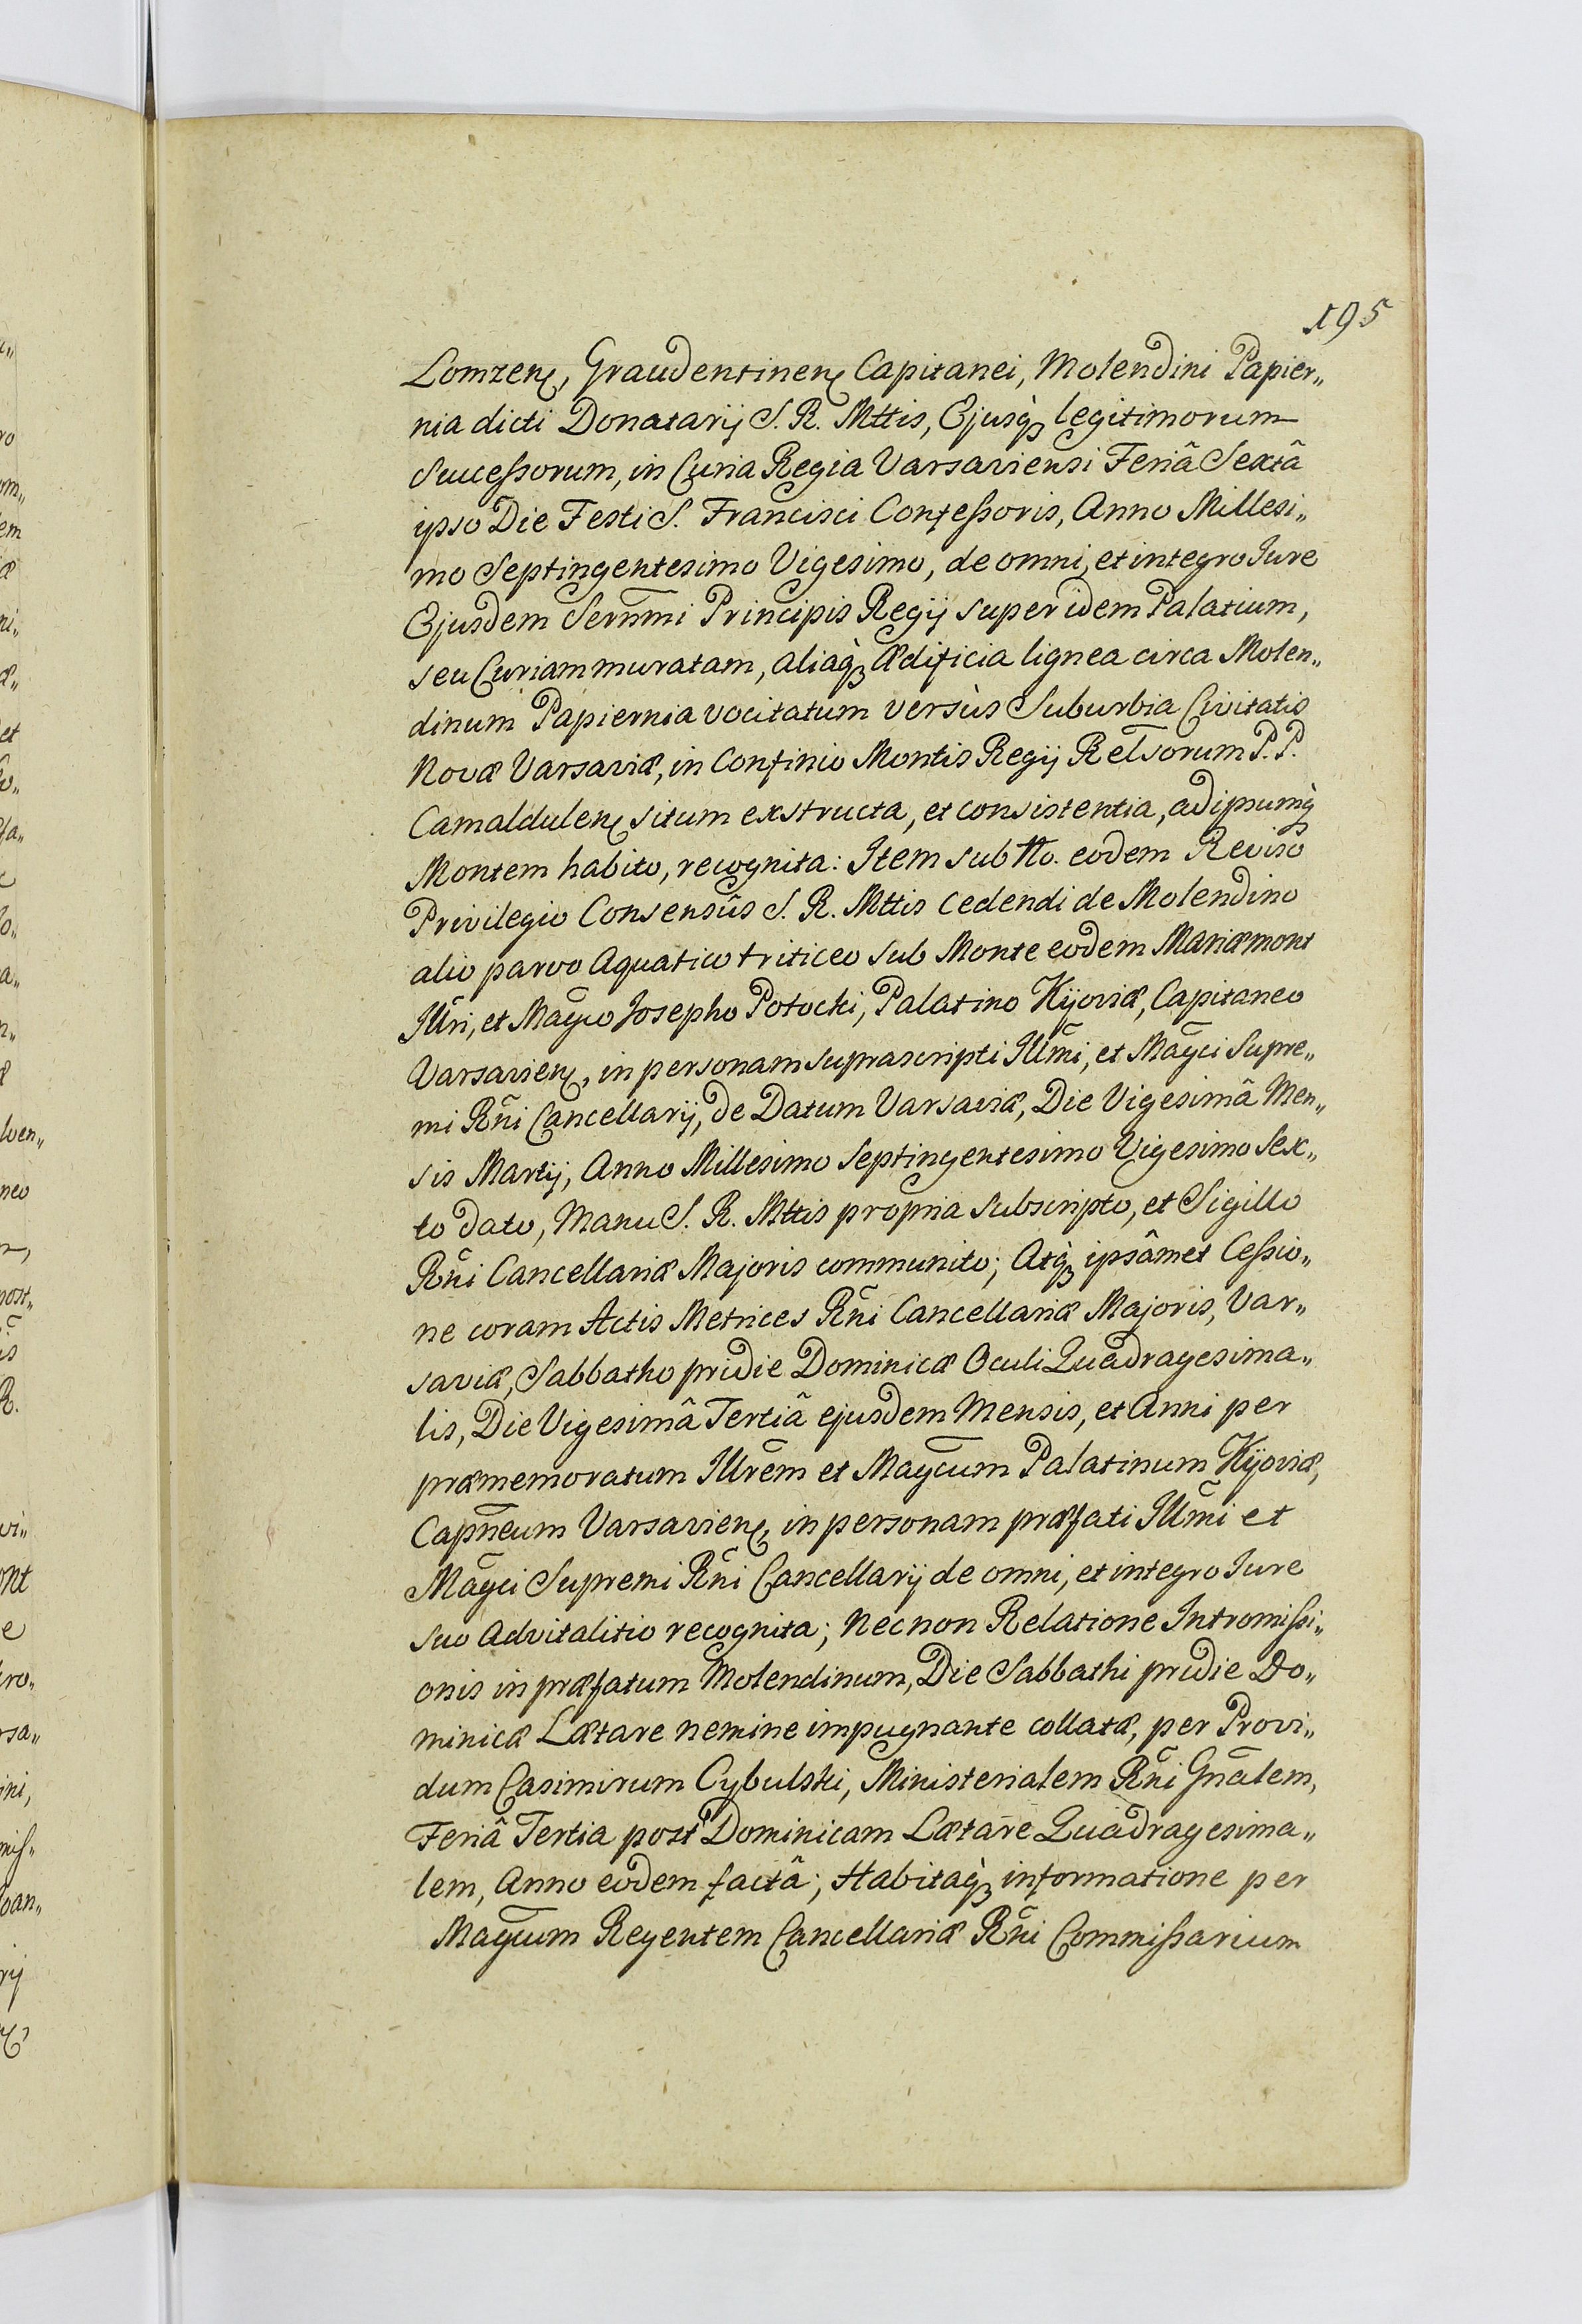 195
Lomzen, Graudentinen Capitanei, Molendini Papier„
nia dicti Donatarij S. R. Mttis, Ejusq̀ legitimorum
Successorum, in Curia Regia Varsaviensi Feriâ Sextâ
ipso Die Festi S. Francisci Confessoris, Anno Millesi„
mo Septingentesimo Vigesimo, de omni, et integro Jure
Ejusdem Sernmi Principis Regij super idem Palatium,
seu Curiam muratam, aliaq̀ Ædificia lignea circa Molen„
dinum Papiernia vocitatum versùs Suburbia Civitatis
Novæ Varsaviæ, in Confinio Montis Regij Relsorum P. P.
Camaldulen situm exstructa, et consistentia, ad ipsumq̀
Montem habito, recognita: Item sub tto. eodem Reviso
Privilegio Consensûs S. R. Mttis cedendi de Molendino
alio parvo Aquatico triticeo sub Monte eodem Mariæmont
Illri, et Magco Josepho Potocki, Palatino Kijoviæ, Capitaneo
Varsavien, in personam suprascripti Illmi, et Magci Supre„
mi Rni Cancellarij, de Datum Varsaviæ, Die Vigesimâ Men„
sis Martij, Anno Millesimo Septingentesimo Vigesimo Sex„
to dato, Manu S. R. Mttis propria subscripto, et Sigillo
Rni Cancellariæ Majoris communito; Atq̀ ipsâmet Cessio„
ne coram Actis Metrices Rni Cancellariæ Majoris, Var„
saviæ, Sabbatho pridie Dominicæ Oculi Quadragesima„
lis, Die Vigesimâ Tertiâ ejusdem Mensis, et Anni per
præmemoratum Illrem et Magcum Palatinum Kijoviæ,
Capneum Varsavien, in personam præfati Illmi et
Magci Supremi Rni Cancellarij de omni, et integro Jure
suo Advitalitio recognita; Necnon Relatione Intromissi„
onis in præfatum Molendinum, Die Sabbathi pridie Do„
minicæ Lætare nemine impugnante collatæ, per Provi„
dum Casimirum Cybulski, Ministerialem Rni Gnalem,
Feriâ Tertia post Dominicam Lætare Quadragesima„
lem, Anno eodem factâ; Habitaq̀ informatione per
Magcum Regentem Cancellariæ Rni Commissarium